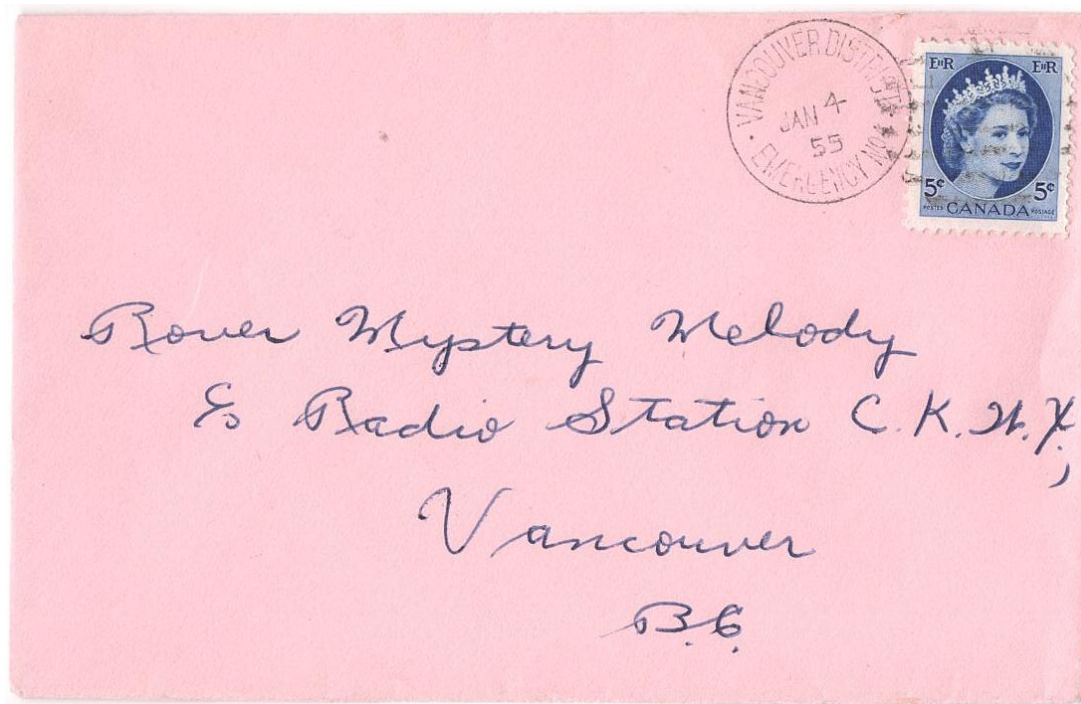 VANCOUVER DISTRICT
JAN 4
55
EMERGENCY No
EIIR EIIR
5¢ 5¢
POSTES CANADA POSTAGE
Rover Mystery Melody
c/o Radio Station C.K.W.X,
Vancouver
B.C.